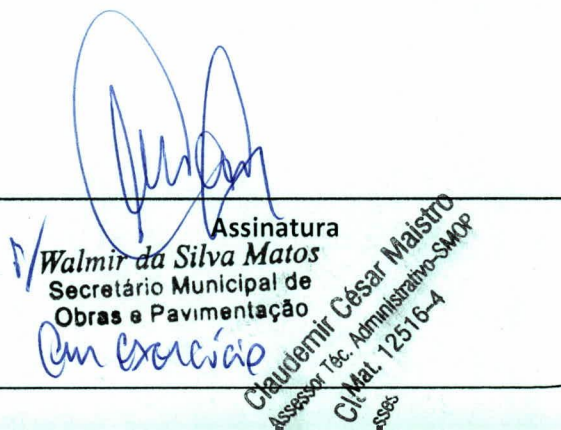 Assinatura
P/ Walmir da Silva Matos
Secretário Municipal de
Obras e Pavimentação
Em exercício
Claudemir César Maistro
Assessor Téc. Administrativo-SMOP
Mat. 12516-4